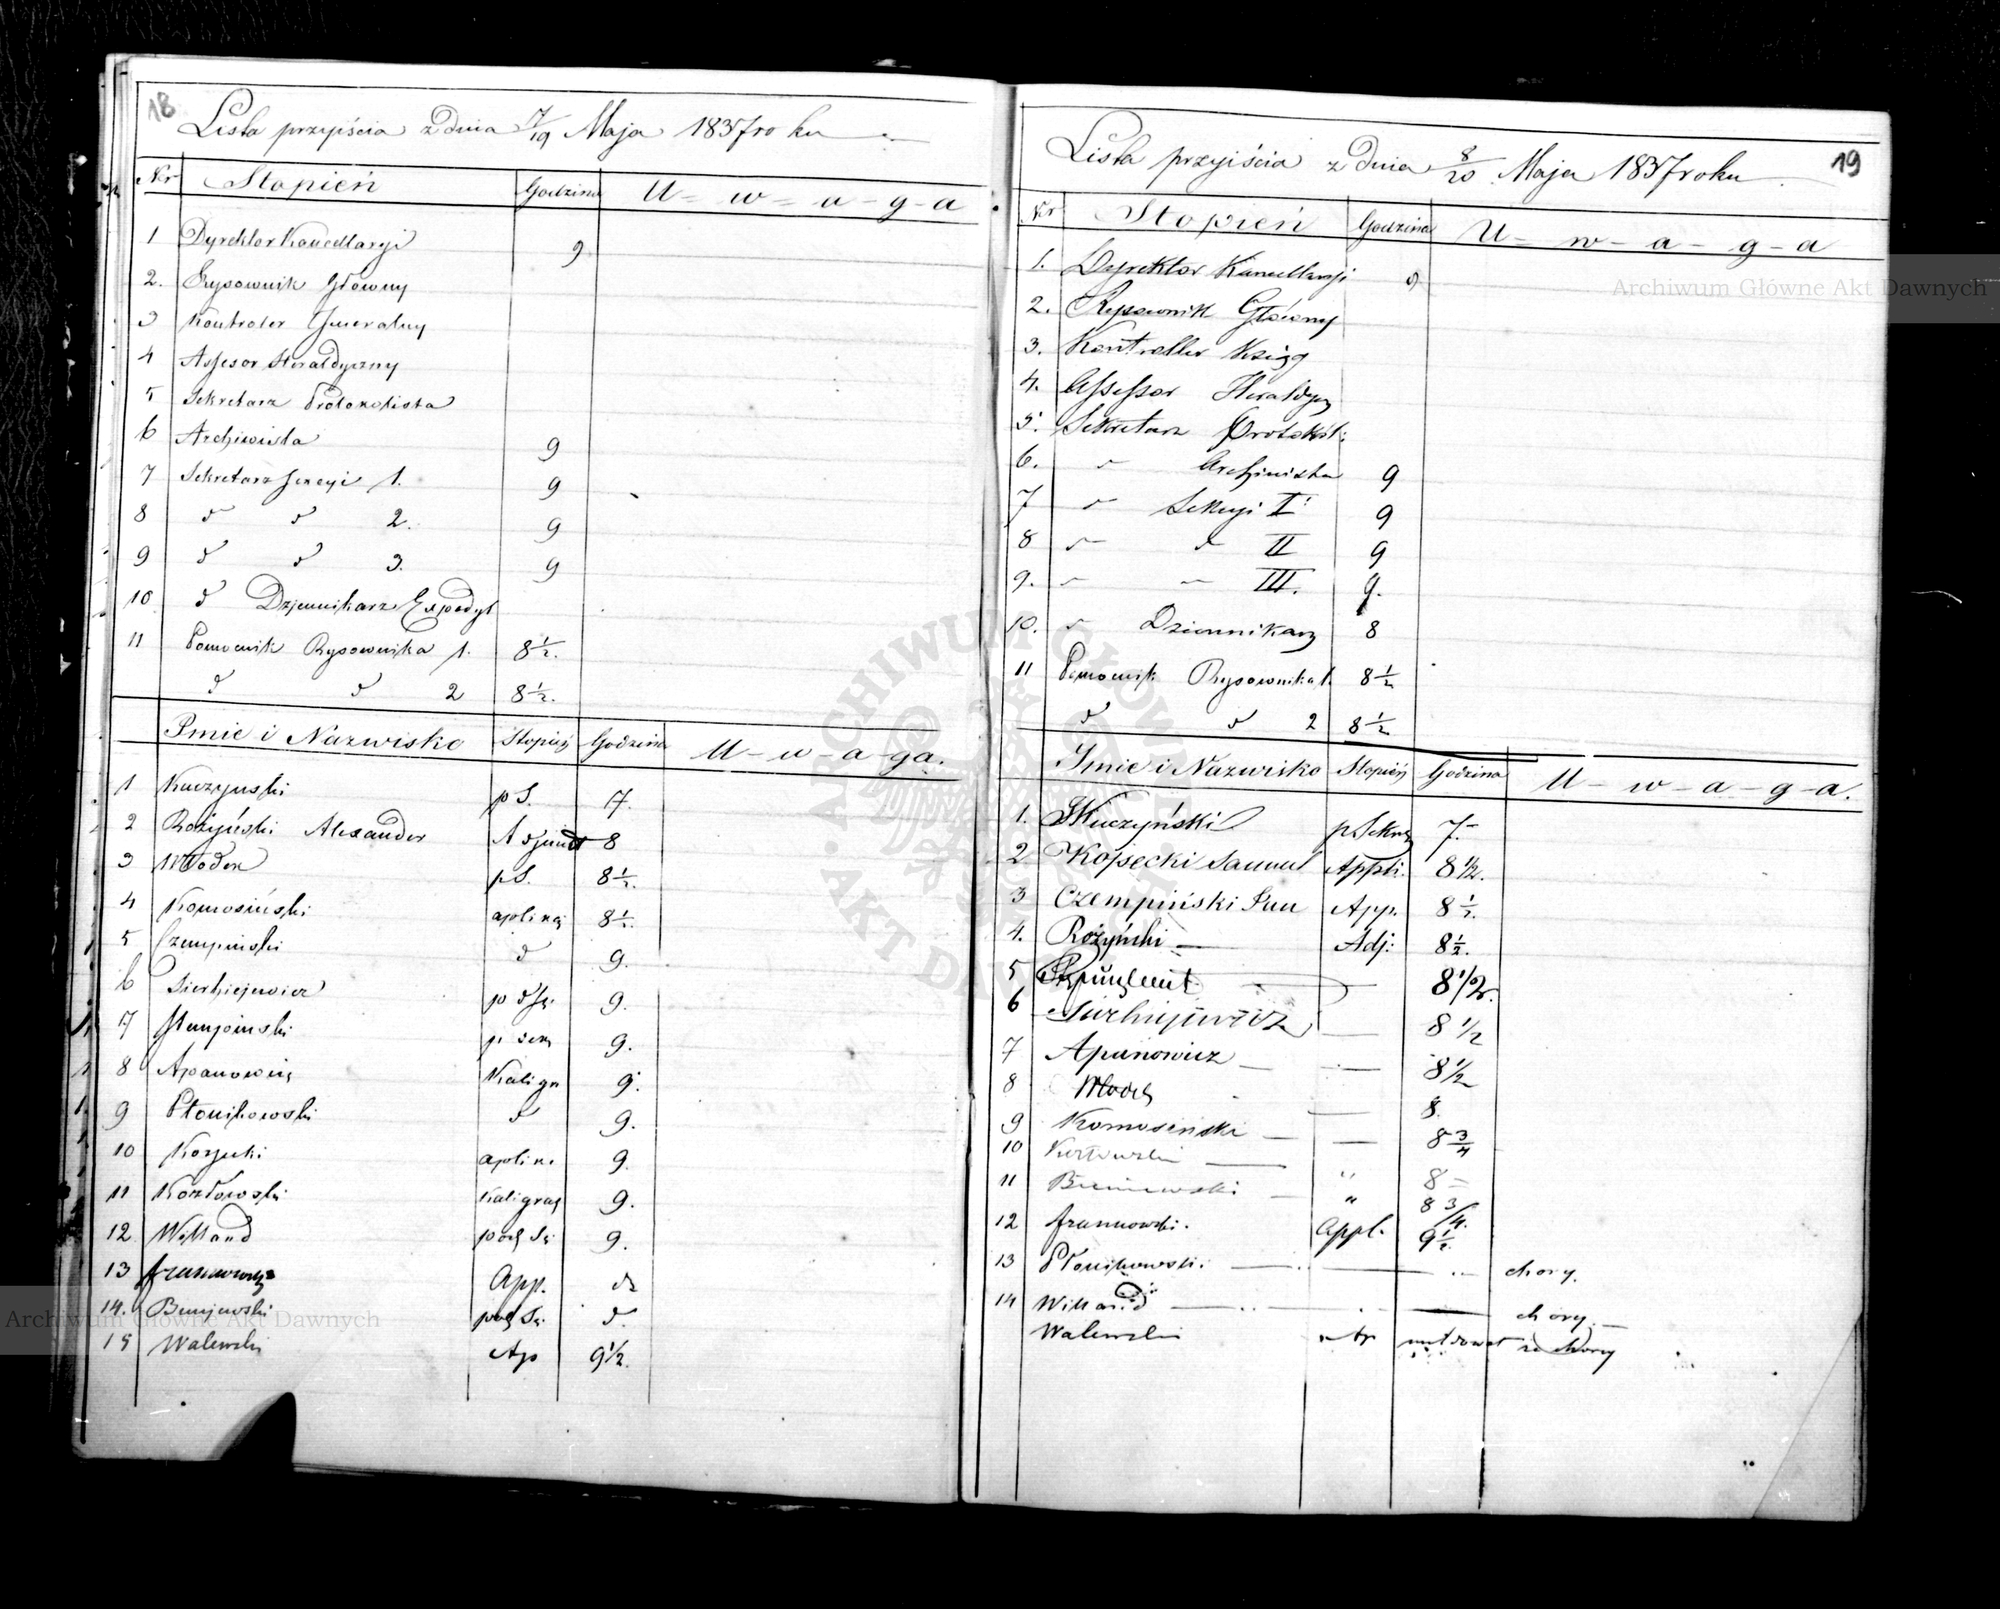 18
Lista przyiścia z dnia 7/19 Maja 1837 roku
Nr Stopień Godzina U-w-a-g-a
1 Dyrektor Kancellaryi 9
2. Rysownik Główny
3 Kontroler Jeneralny
4 Assesor Heraldyczny
5 Sekretarz Protokolista
6 Archiwista 9
7 Sekretarz Sekcyi 1. 9
8 d d 2. 9
9 d d 3. 9
10 d Dziennikarz Expedyt
11 Pomocnik Rysownika 1. 8 1/2.
d d 2 8 1/2.
Imie i Nazwisko Stopień Godzina U-w-a-ga.
1 Kuczyński p S. 7.
2 Rożyński Alexander Adjunkt 8
3 Młodek pS. 8 1/2.
4 Komosiński aplikaj 8 1/2.
5 Czempiński d 9.
6 Sierhiejewicz 9.
7 9.
8 Apanowicz Kaligr 9.
9 Płonikowski d 9.
10 Kossecki aplik. 9.
11 Kozłowski Kaligraf 9.
12 Willand 9.
13 App. d
14. Buniewski d.
15 Walewski Ap 9 1/2.
19
Lista przyiścia z dnia 8/20 Maja 1837 roku
Nr Stopień Godzina U-w-a-g-a
1. Dyrektor Kancellaryi 9
2. Rysownik Główny
3. Kontroller Ksiąg
4. Assessor Heraldycz
5. Sekretarz Protokół:
6. d Archiwista 9
7 d Sekcyi I 9
8 d d II 9
9. III. 9.
10. d Dziennikarz 8
11 Pomocnik Rysownika 1. 8 1/2
d d 2 8 1/2
Imie i Nazwisko Stopień Godzina U-w-a-g-a.
1. Kuczyński p Sekr 7.
2 Kossecki Samuel Appli. 8 1/2.
3 Czempiński Jan App. 8 1/2.
4. Rożyński Adj: 8 1/2.
5 8 1/2.
6 Sierhiejewicz 8 1/2
7 Apanowicz 8 1/2
8 Młodek 8.
9 Komosiński 8 3/4
10 Kozłowski " 8
11 Buniewski " 8 3/4.
12 Appl. 9 1/2.
13 Płonikowski chory.
14 Willand chory.
Walewski chory
Archiwum Główne Akt Dawnych
Archiwum Główne Akt Dawnych
ARCHIWUM GŁÓWNE AKT DAWNYCH